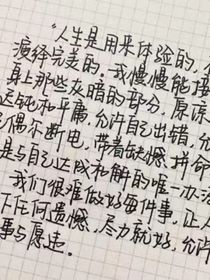 “人生是用来体验的，
演绎完美的。我慢慢能
身上那些灰暗的部分，原谅
迟钝和平庸，允许自己出错，允
偶尔断电，带着缺憾，拼命
是与自己达成和解的唯一办法
我们很难做好每件事，让人
下任何遗憾，尽力就好，允许
事与愿违。